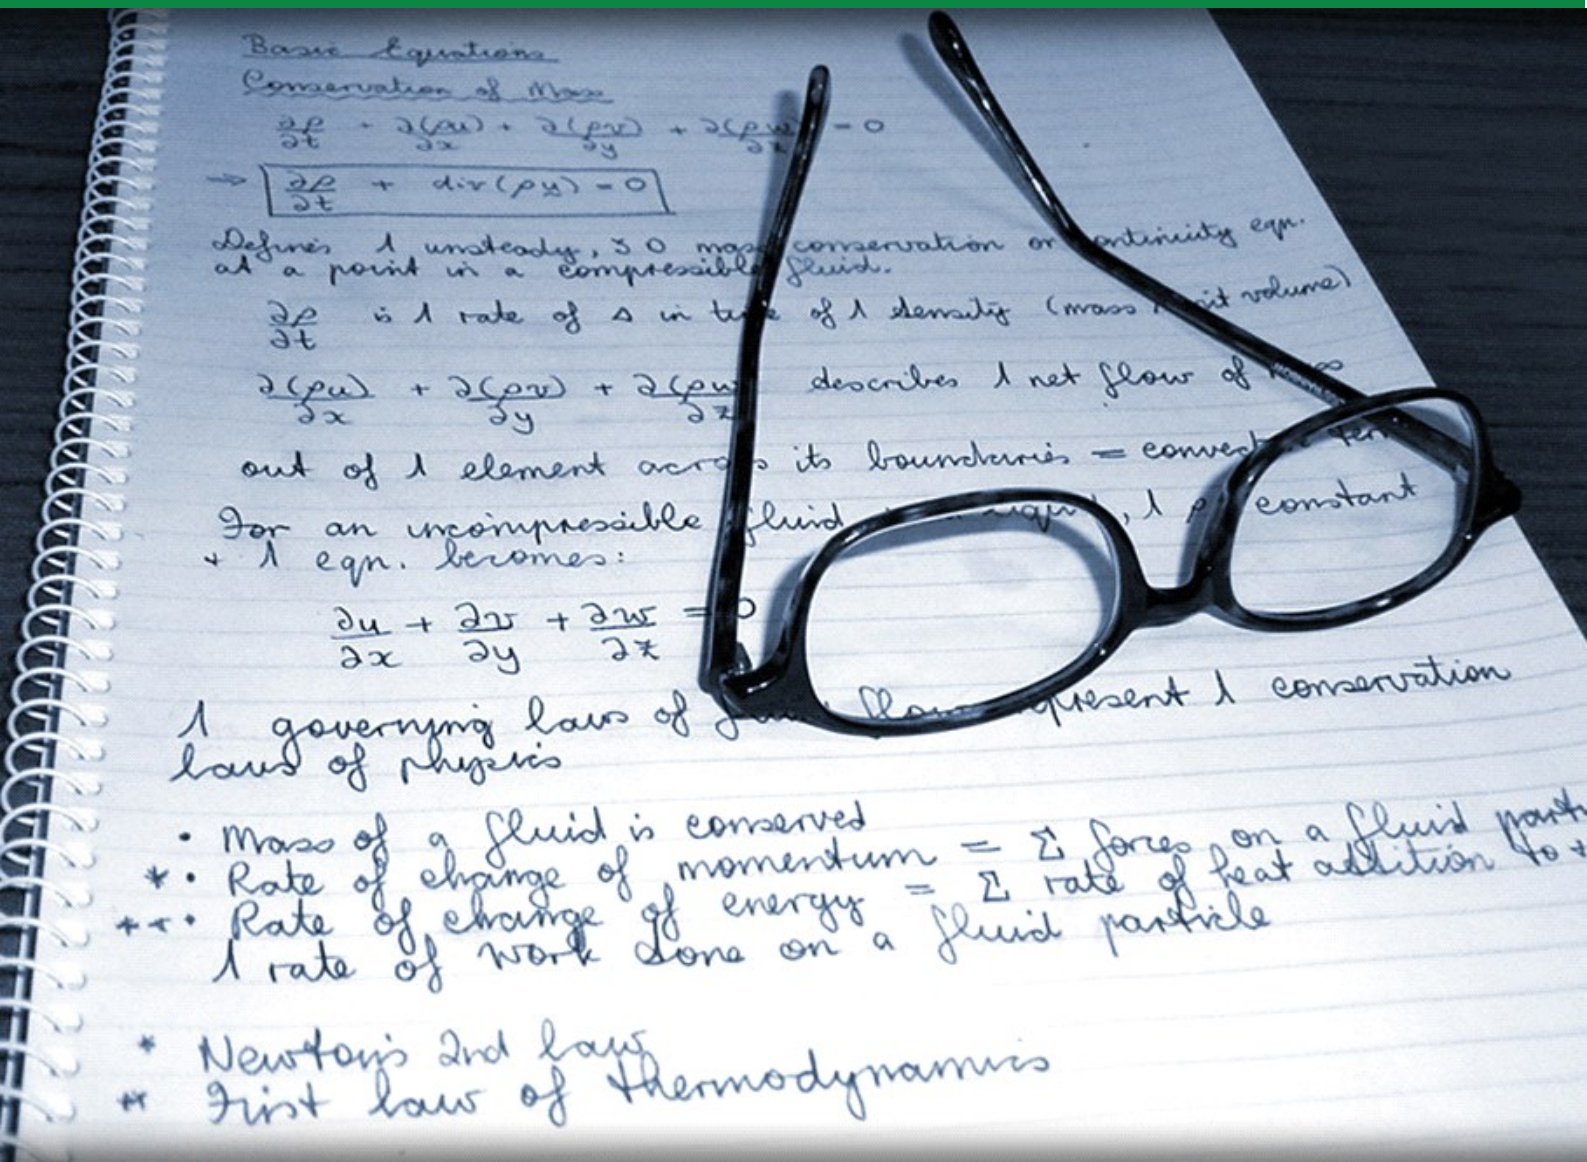 Basic Equations
Conservation of Mass
∂ρ/∂t + ∂(ρu)/∂x + ∂(ρv)/∂y + ∂(ρw)/∂z = 0
⇒ ∂ρ/∂t + div(ρu) = 0
Defines 1 unsteady, 3D mass conservation or continuity eqn.
at a point in a compressible fluid.
∂ρ/∂t is 1 rate of Δ in time of 1 density (mass unit volume)
∂(ρu)/∂x + ∂(ρv)/∂y + ∂(ρw)/∂z describes 1 net flow of mass
out of 1 element across its boundaries =
For an incompressible fluid, 1 ρ constant
+ 1 eqn. becomes:
∂u/∂x + ∂v/∂y + ∂w/∂z = 0
1 governing laws of flow represent 1 conservation
laws of physics
• Mass of a fluid is conserved
* • Rate of change of momentum = Σ forces on a fluid
** • Rate of change of energy = Σ rate of heat addition to +
1 rate of work done on a fluid particle
* Newton's 2nd law
** First law of thermodynamics